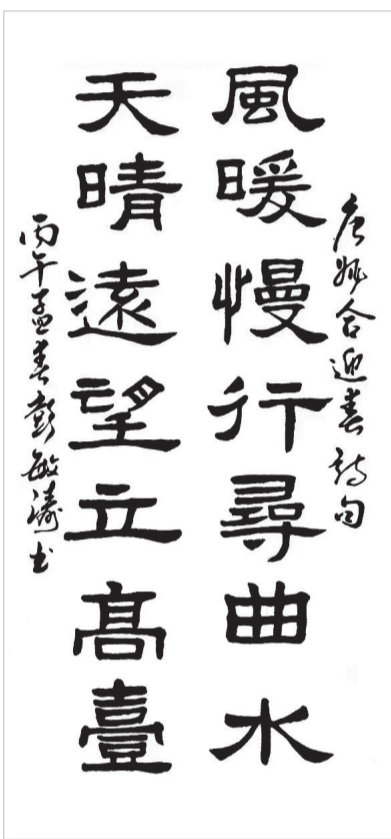 唐姚合迎春诗句
風暖慢行尋曲水
天晴遠望立高臺
丙午孟春彭敏濤书